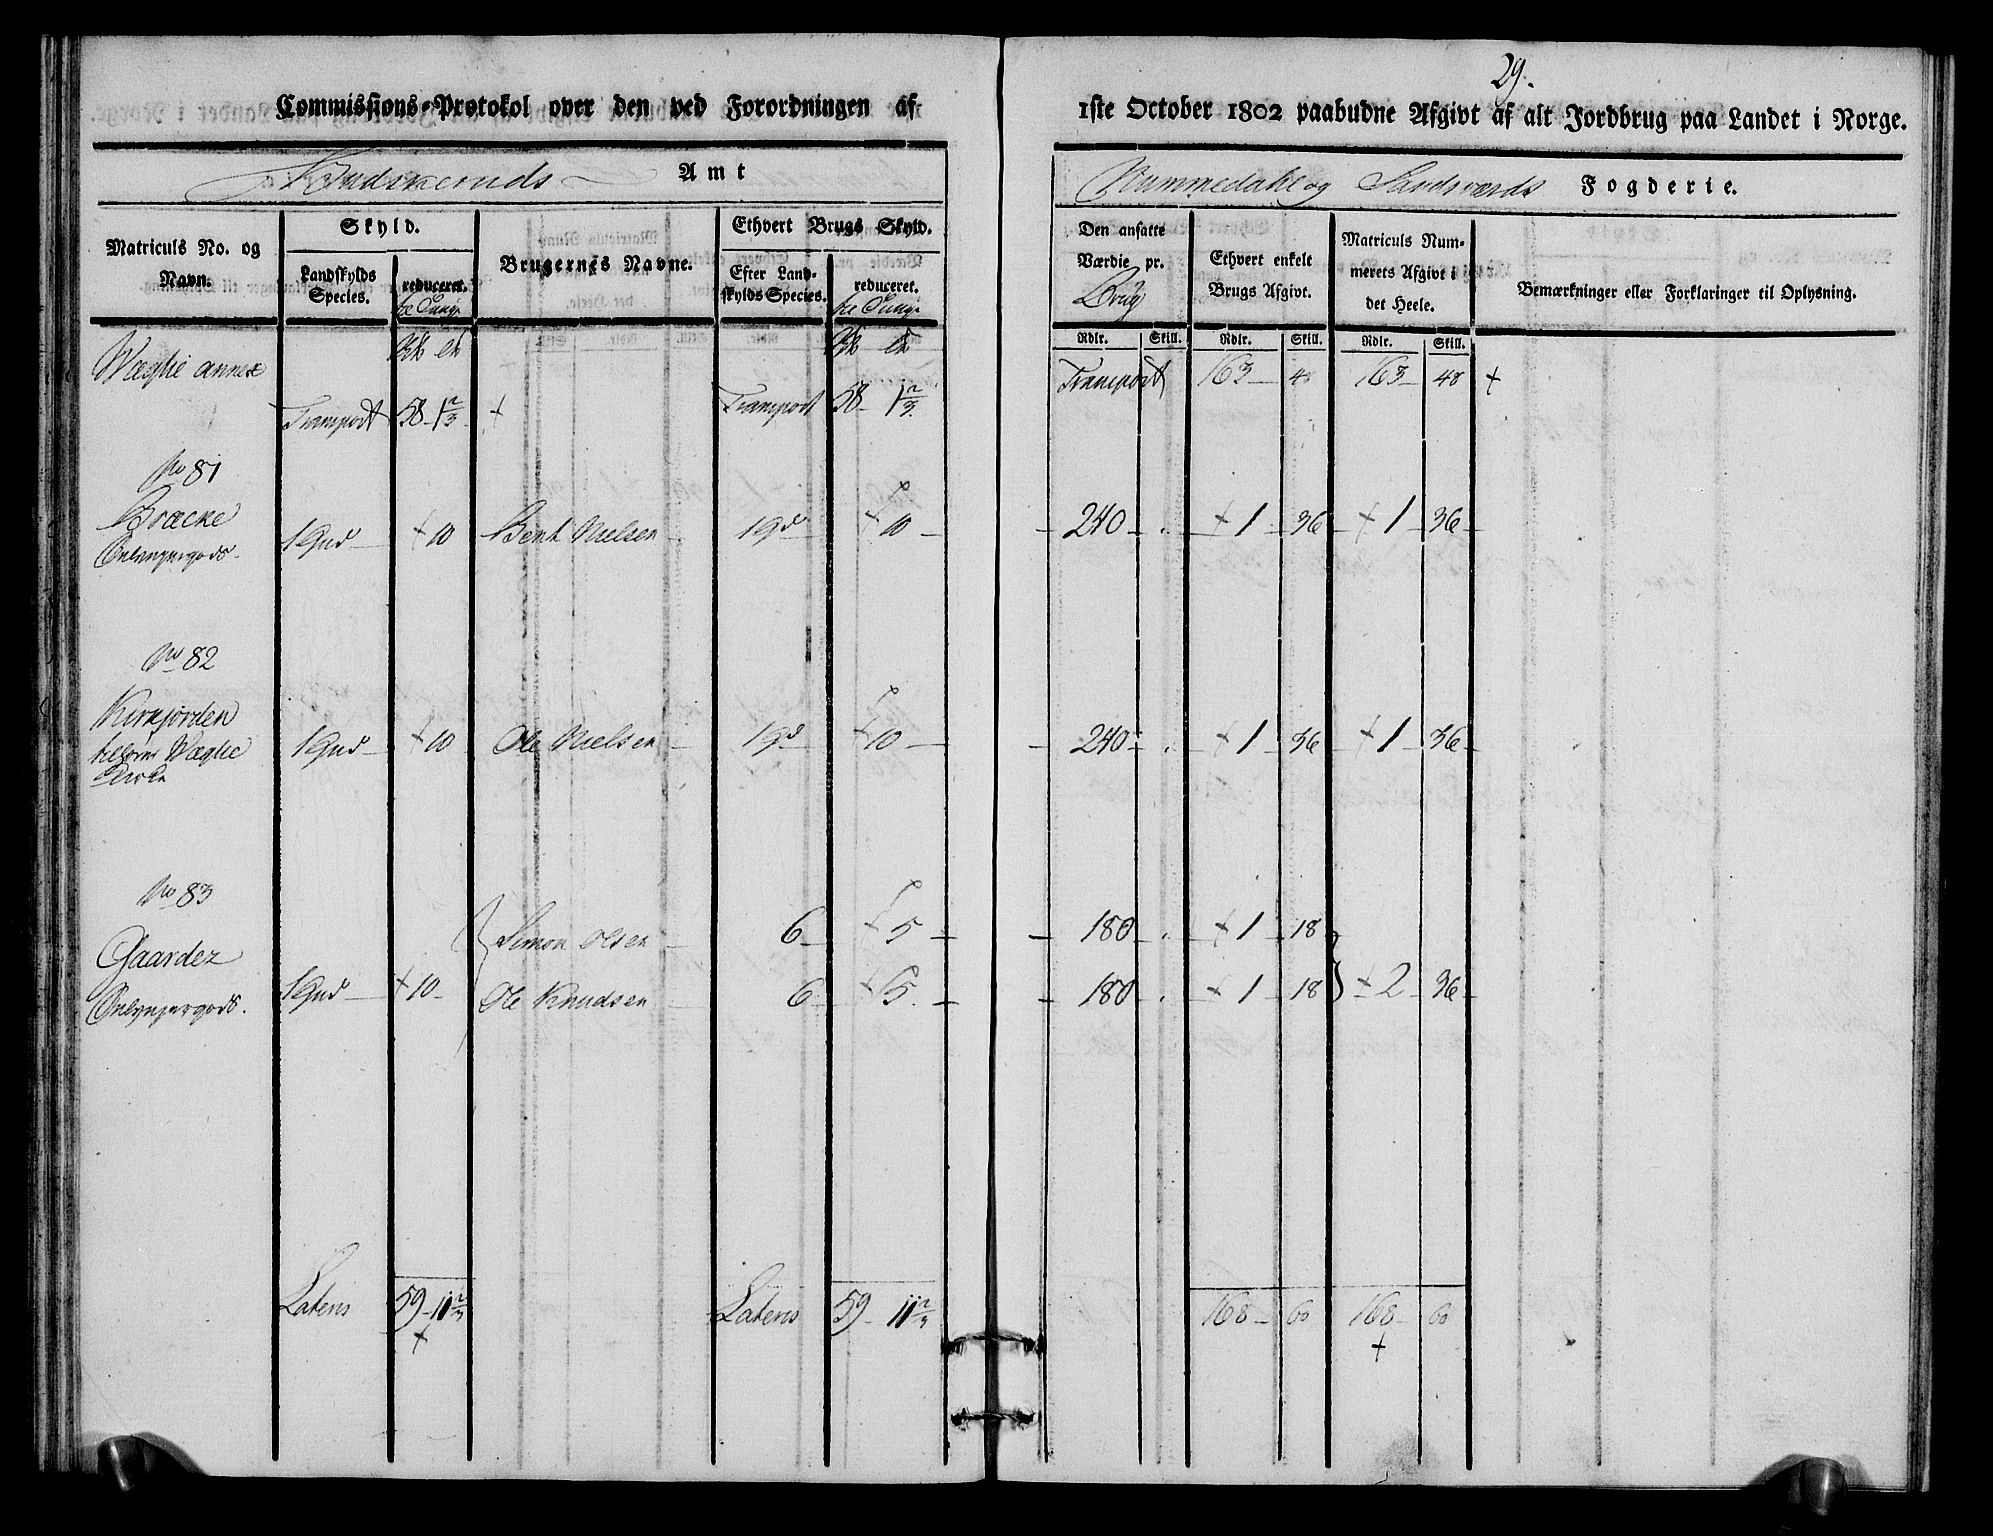 29.
Commissions-Protokol over den ved Forordningen af
1ste October 1802 paabudne Afgivt af alt Jordbrug paa Landet i Norge.
Budskeruds Amt
Nummedahl og Sandsværds Fogderie.
Matriculs No. og Navn.
Skyld.
Landskylds Species.
reduceret.
Brugernes Navne.
Ethvert Brugs Skyld.
Efter Landskylds Species.
reduceret.
Den ansatte Værdie pr. Brug
Ethvert enkelt Brugs Afgivt.
Matriculs Nummerets Afgivt i det Heele.
Bemærkninger eller Forklaringer til Oplysning.
Rdlr. Skill. Rdlr. Skill. Rdlr. Skill.
Wæglie annex
Transport 163 48 163 48 +
Transport 58 1 2/3 + Transport 58 1 2/3
No 81
Bræcke 1 Hud + 10 Bent Nielsen 1 + 10 240 . + 1 36 + 1 36
No 82
Kirkjorden
tilhører Wæglie 1 Hud + 10 Ole Nielsen 1 + 10 240 . + 1 36 + 1 36
Kirke
No 83
Simon Olsen 6 + 5 180 . + 1 18
Gaarder
1 Hud + 10 Ole Knudsen 6 + 5 180 . + 1 18 + 2 36
Latens 59 11 2/3 Latens 59 11 2/3 168 60 168 60
+ +